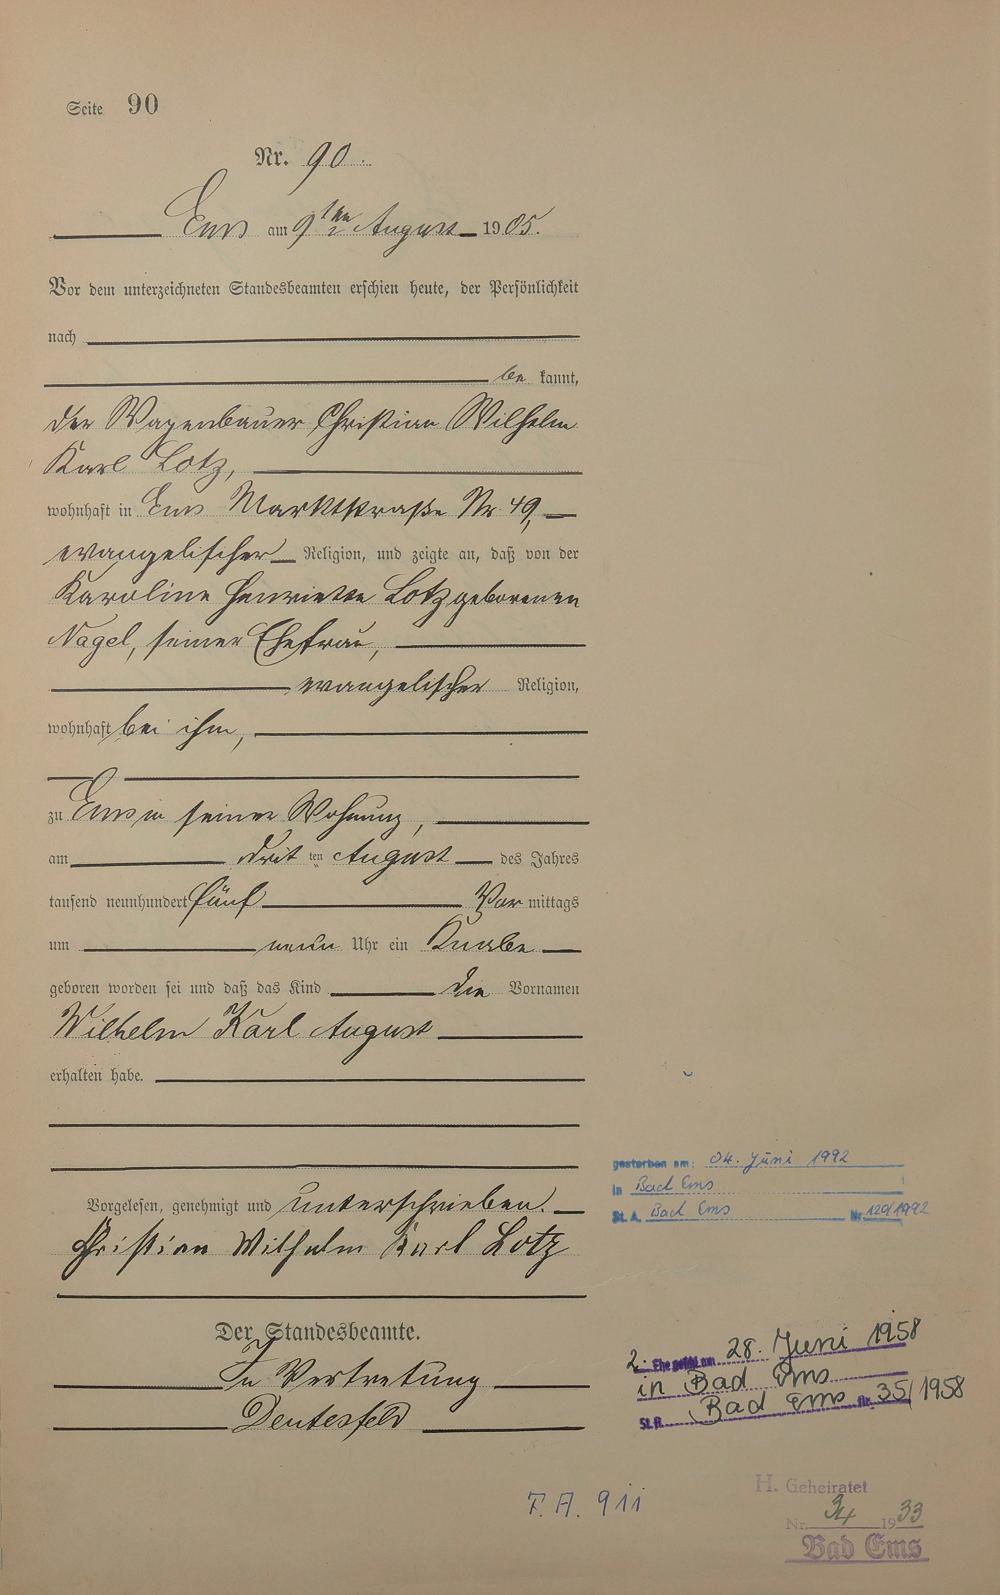 Seite 90
Nr. 90.
Ems am 9ten August 1905.
Vor dem unterzeichneten Standesbeamten erschien heute, der Persönlichkeit
nach
be kannt,
der Wagenbauer Christian Wilhelm
Karl Lotz,
wohnhaft in Ems Marktstraße Nr. 49,
evangelischer Religion, und zeigte an, daß von der
Karoline Henriette Lotz geborenen
Nagel, seiner Ehefrau,
evangelischer Religion,
wohnhaft bei ihm,
zu Ems in seiner Wohnung,
am dritten August des Jahres
tausend neunhundert fünf Vormittags
um neun Uhr ein Knabe
geboren worden sei und daß das Kind die Vornamen
Wilhelm Karl August
erhalten habe.
Vorgelesen, genehmigt und unterschrieben.
Christian Wilhelm Karl Lotz
Der Standesbeamte.
In Vertretung
Deutesfeld
gestorben am: 04. Juni 1992
in Bad Ems
St. A. Bad Ems Nr 120/1992
2. Ehe geschl. am 28. Juni 1958
in Bad Ems
St. A. Bad Ems Nr. 35/1958
F. A. 911
H. Geheiratet
Nr. 34 1933
Bad Ems